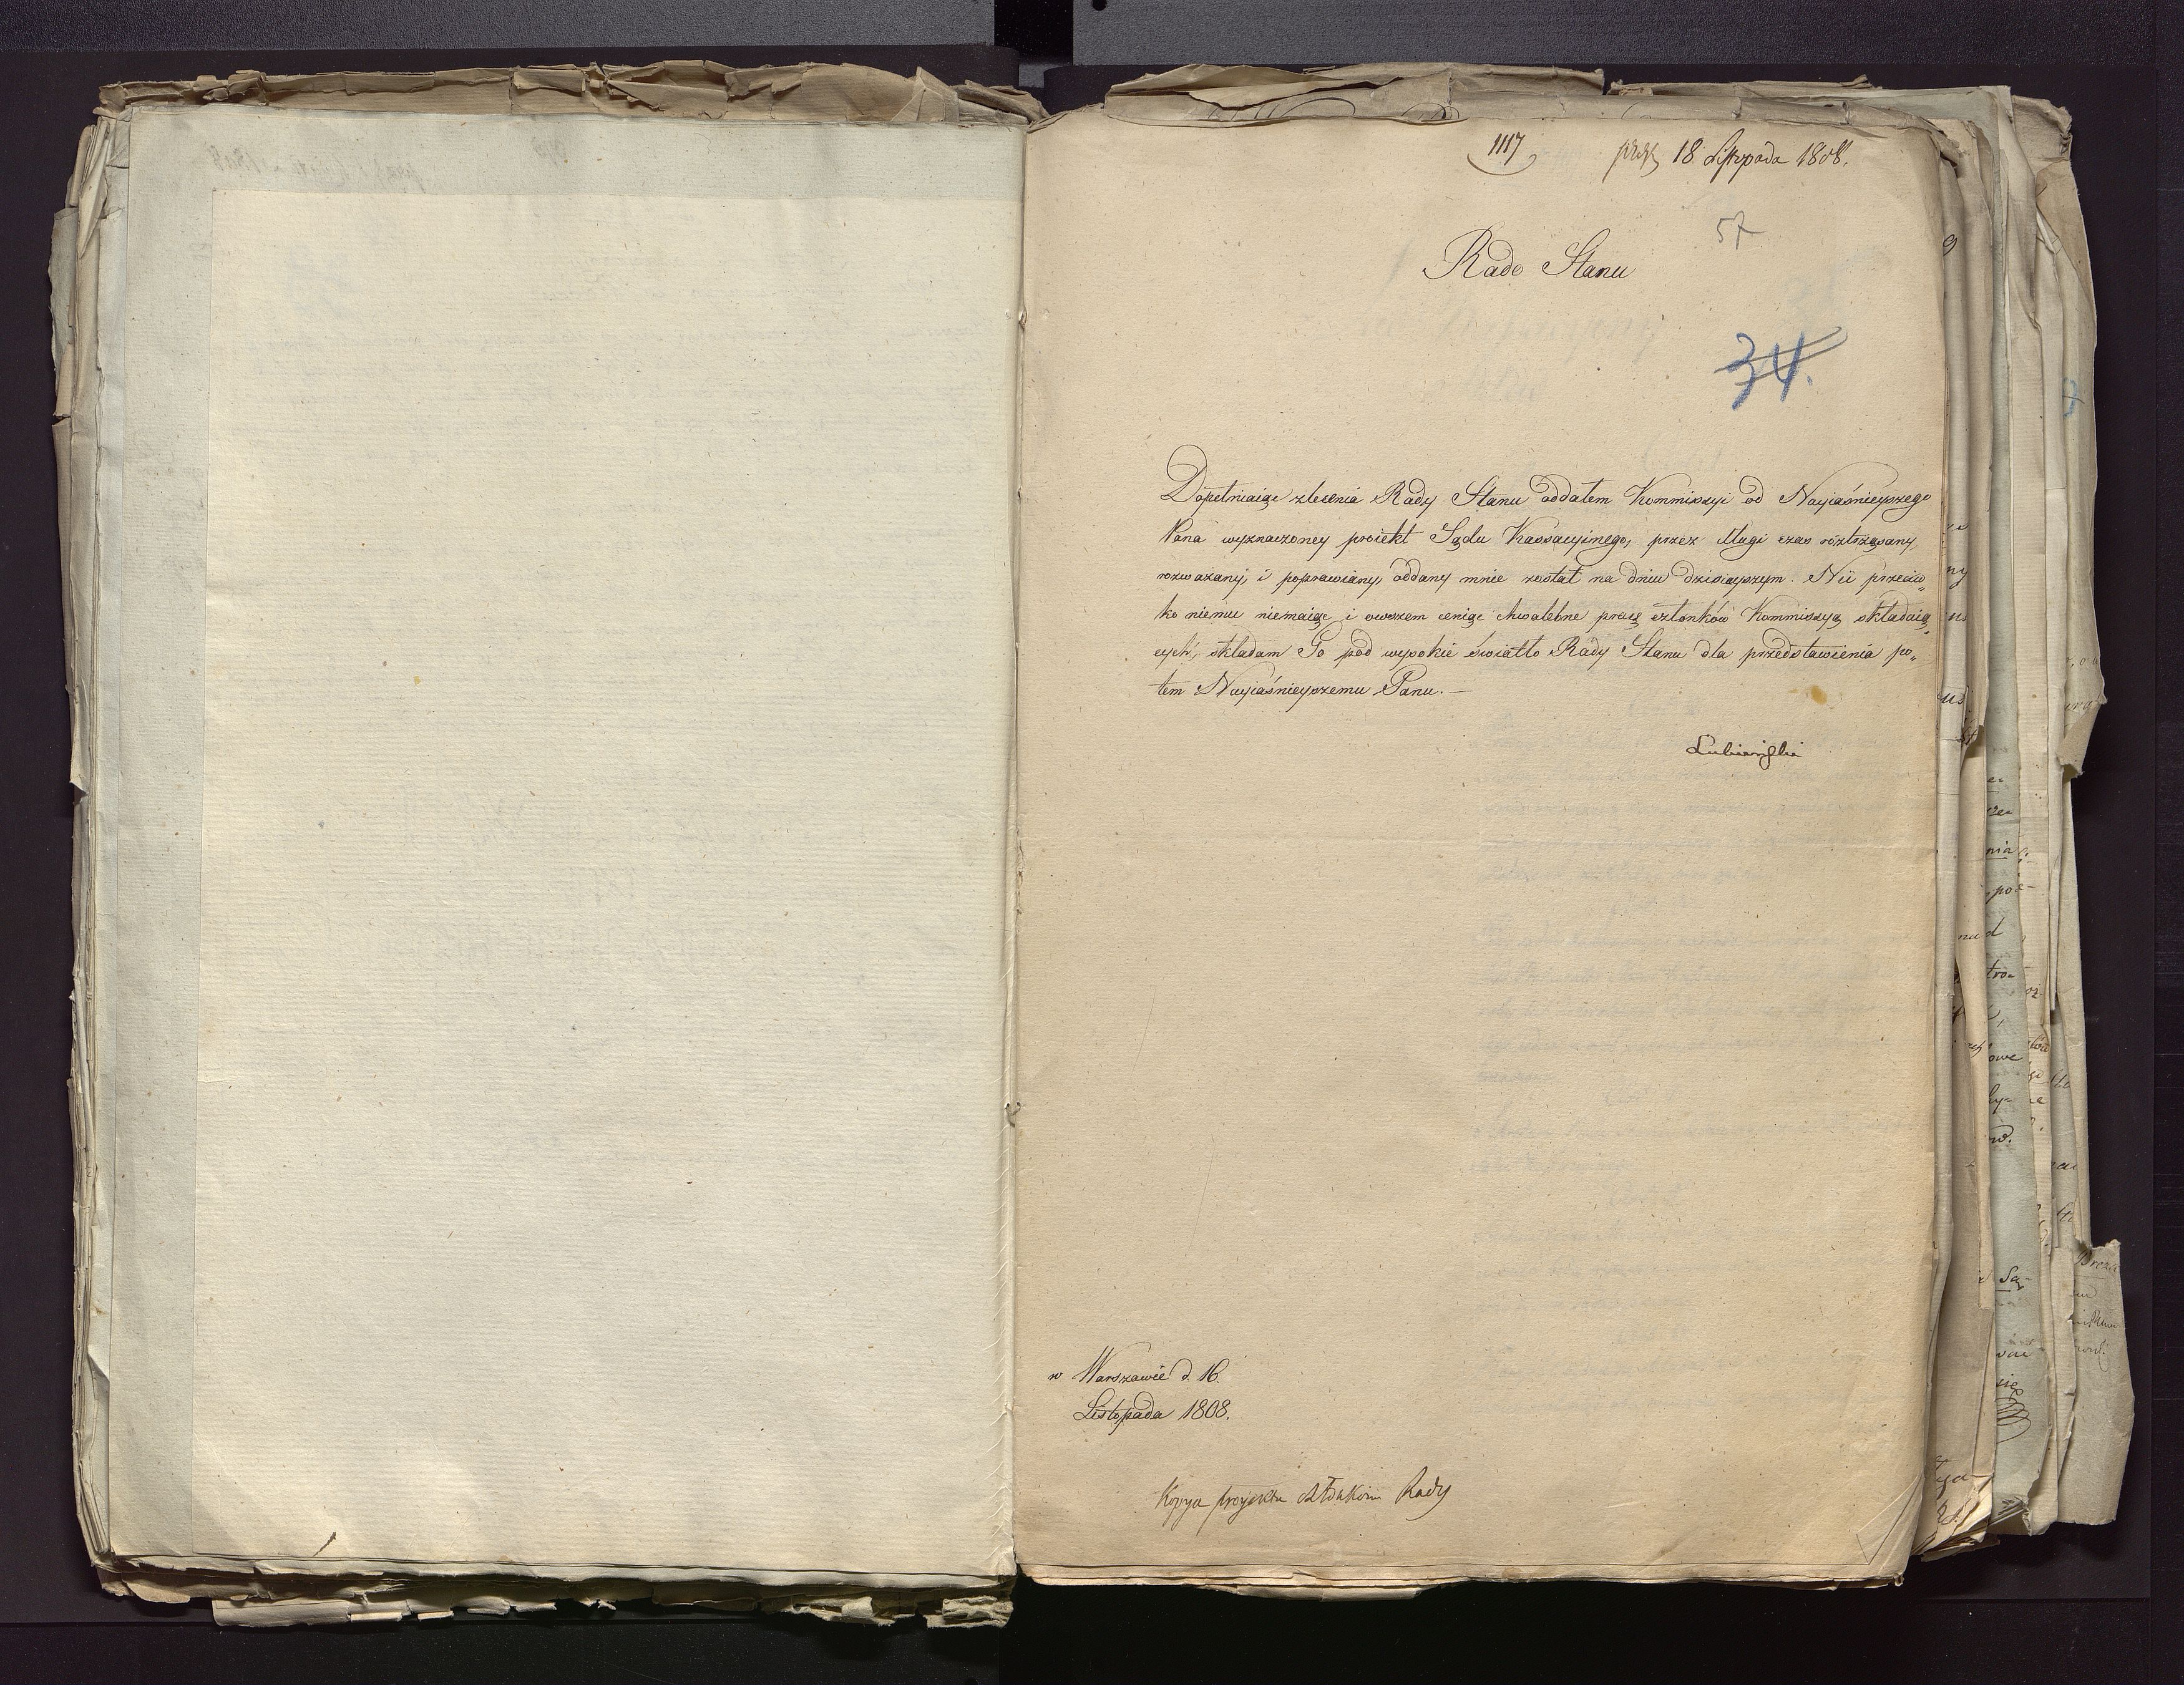 1117 prez 18 Listopada 1808.
57
Rado Stanu
34.
Dopełniaiąc zlecenia Rady Stanu oddałem Kommissyi od Nayiaśnieyszego
Pana wyznaczoney proiekt Sądu Kassacyinego, przez długi czas roztrząsany,
rozważany, i poprawiany, oddany mnie został na dniu dzisieyszym. Nic przeciw„
ko niemu niemaiąc i owszem ceniąc chwalebne pracę członków Kommissyą składaią„
cych, składam Go pod wysokie światło Rady Stanu dla przedstawienia po„
tem Nayiaśnieyszemu Panu. —
Lubieński
w Warszawie d. 16.
Listopada 1808.
Kopya proyektu członkom Rady